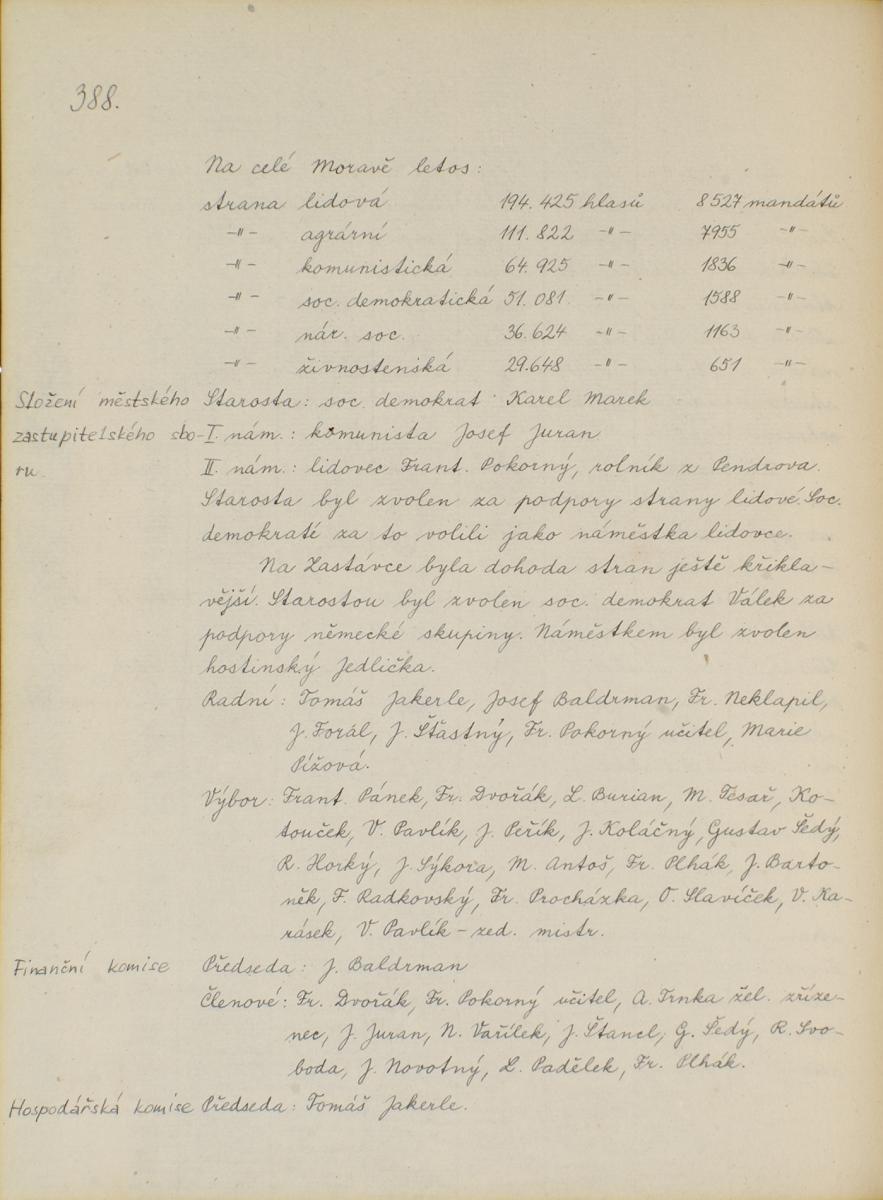 388.
Na celé Moravě letos:
strana lidová 194.425 hlasů 8527 mandátů
-"- agrární 111.822 -"- 7955 -"-
-"- komunistická 64.925 -"- 1836 -"-
-"- soc. demokratická 51.081 -"- 1588 -"-
-"- nár. soc. 36.624 -"- 1163 -"-
-"- živnostenská 29.648 -"- 651 -"-
Složení městského Starosta: soc. demokrat Karel Marek
zastupitelského sbo- I. nám.: komunista Josef Juran
ru. II. nám.: lidovec Frant. Pokorný, rolník z Pendrova.
Starosta byl zvolen za podpory strany lidové. Soc.
demokratí za to volili jako náměstka lidovce.
Na Zastávce byla dohoda stran ještě křikla-
vější. Starostou byl zvolen soc. demokrat Válek za
podpory německé skupiny. Náměstkem byl zvolen
hostinský Jedlička.
Radní: Tomáš Jakerle, Josef Baldrman, Fr. Neklapil,
J. Forál, J. Šťastný, Fr. Pokorný učitel, Marie
Pížová.
Výbor: Frant. Pánek, Fr. Dvořák, L. Burian, M. Tesař, Ko-
touček, V. Pavlík, J. Peřík, J. Koláčný, Gustav Šedý,
R. Horký, J. Sýkora, M. Antoš, Fr. Plhák, J. Barto-
něk, F. Radkovský, Fr. Procházka, O. Slavíček, V. Ka-
rásek, V. Pavlík - zed. mistr.
Finanční komise Předseda: J. Baldrman
Členové: Fr. Dvořák, Fr. Pokorný učitel, A. Trnka žel. zříze-
nec, J. Juran, N. Vařílek, J. Štancl, G. Šedý, R. Svo-
boda, J. Novotný, L. Padělek, Fr. Plhák.
Hospodářská komise Předseda: Tomáš Jakerle.